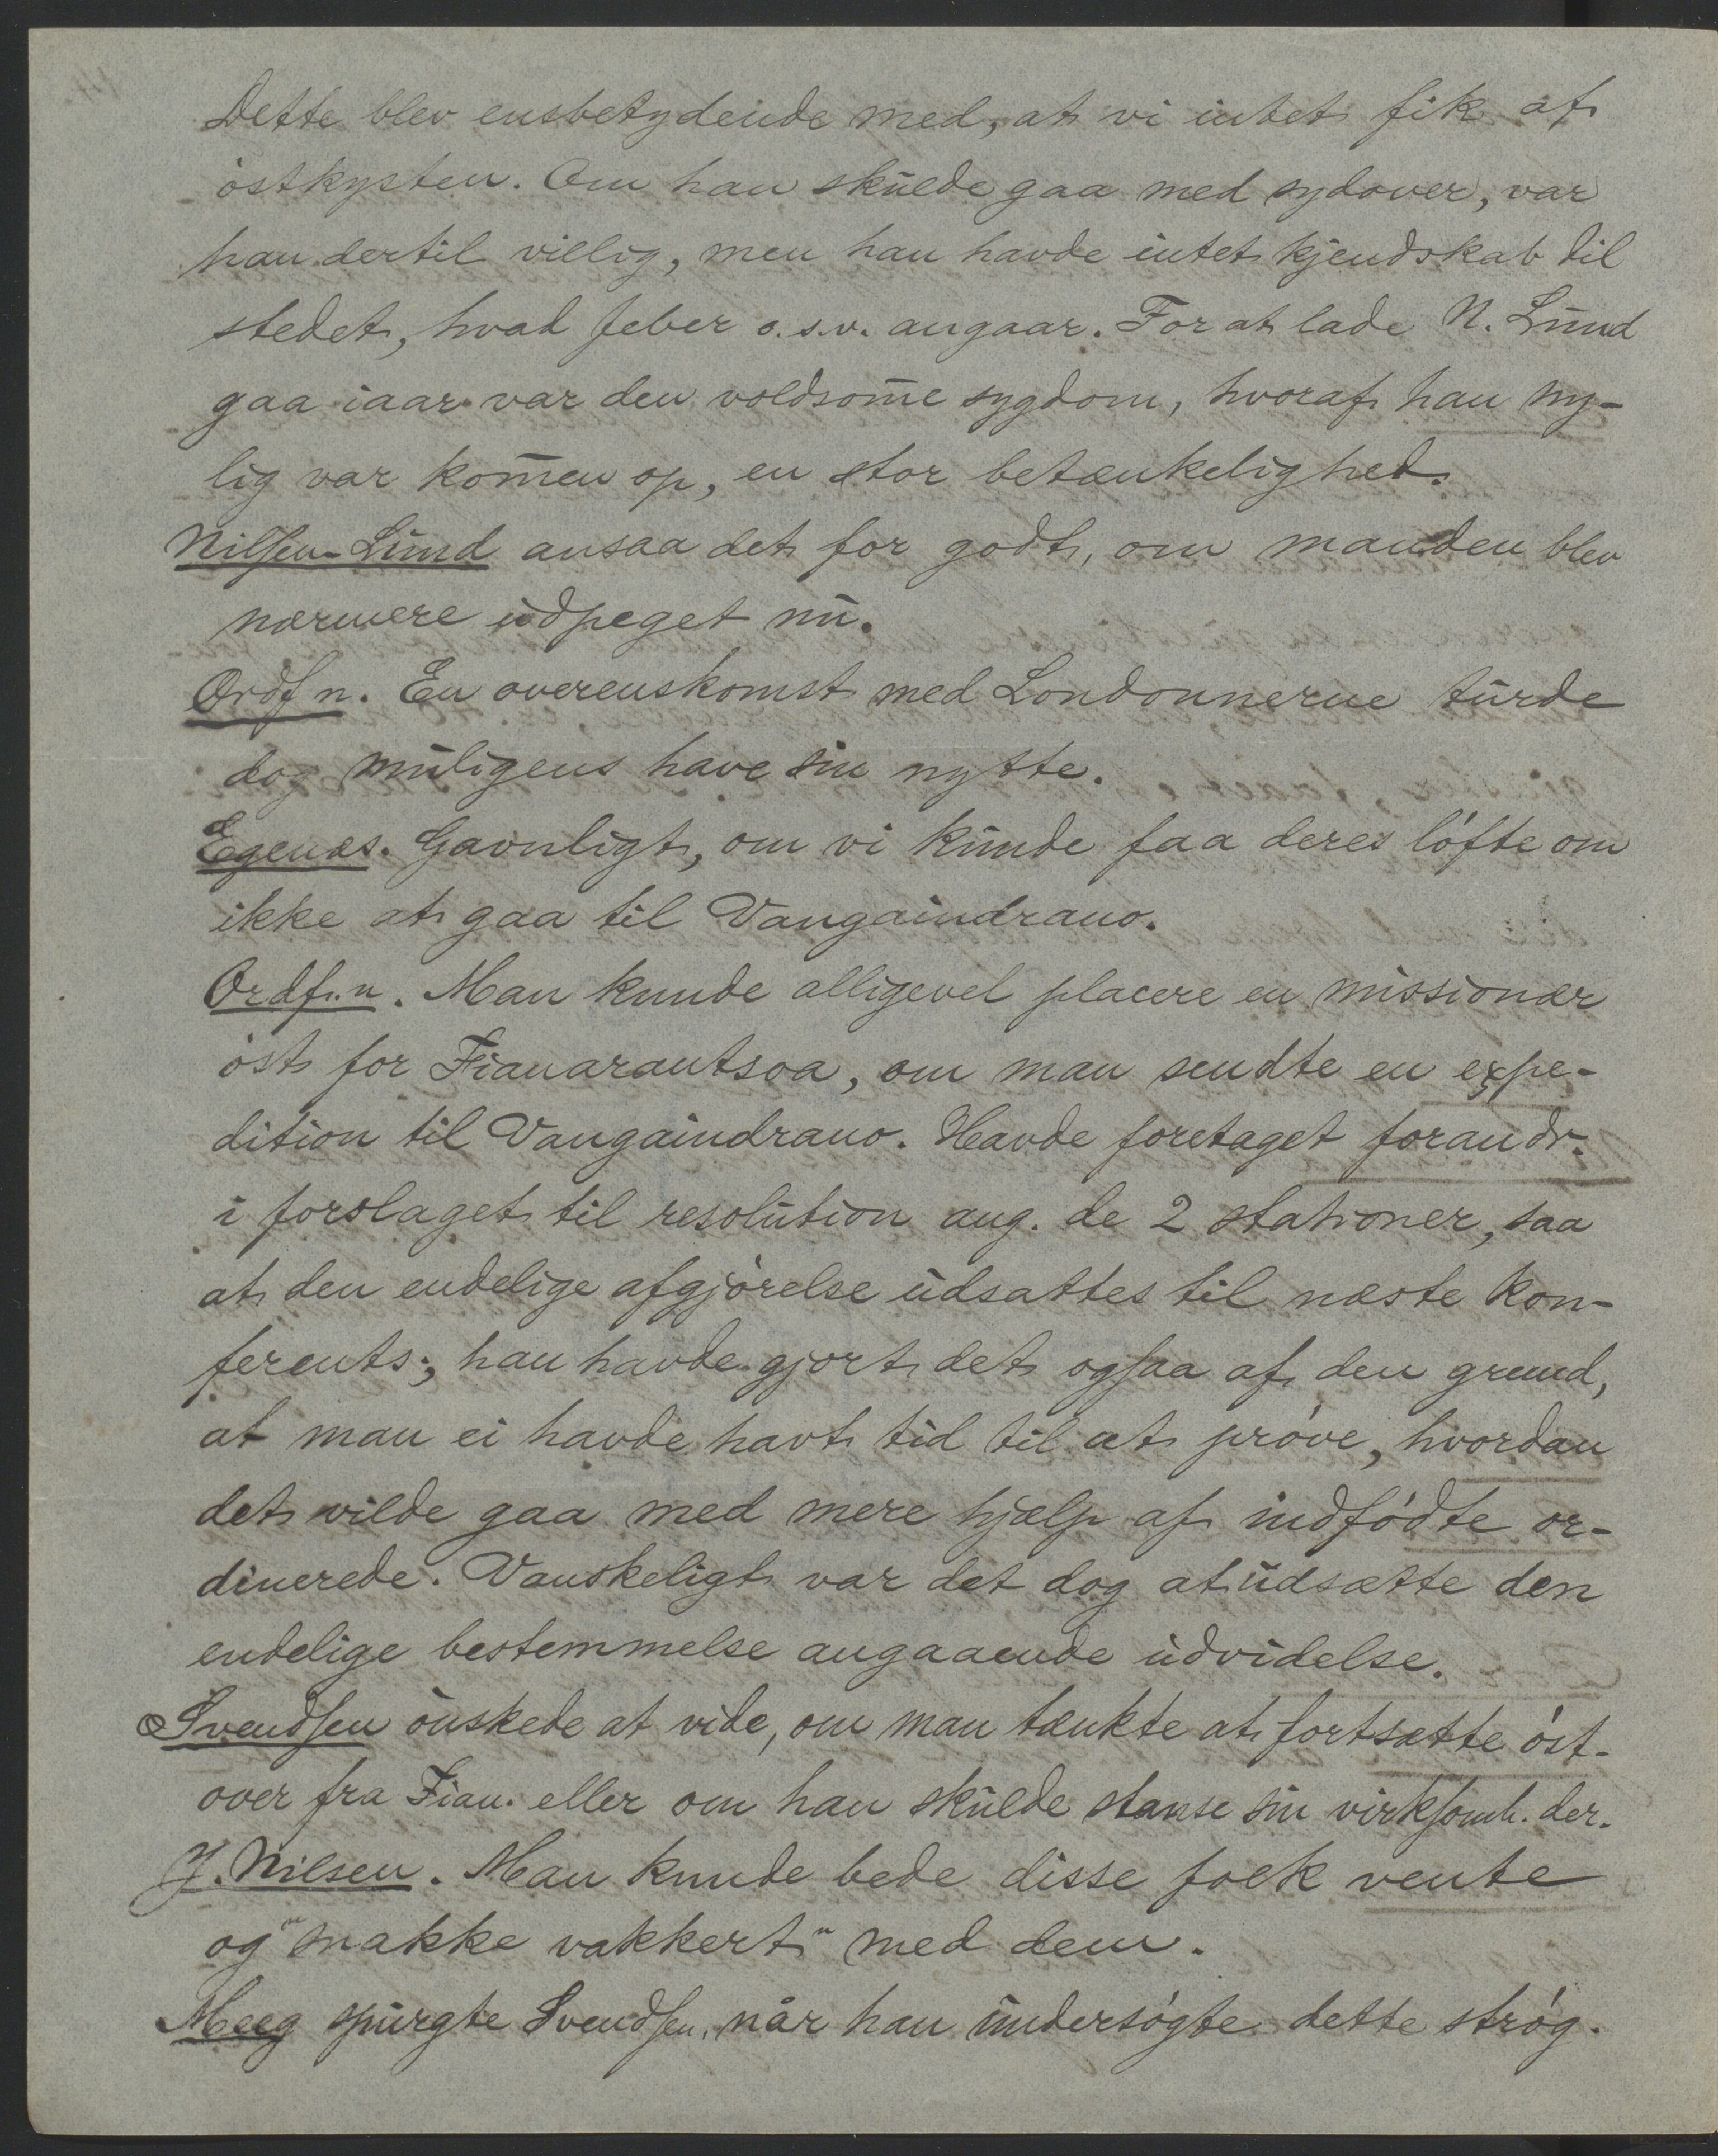 Dette blev ensbetydende med, at vi intet fik af
østkysten. Om han skulde gaa med sydover, var
han dertil villig, men han havde intet kjendskab til
stedet, hvad feber o.s.v. angaar. For at lade N. Lund
gaa iaar var den voldsom̄e sygdom, hvoraf han ny-
lig var kom̄en op, en stor betænkelighed.
Nilsen-Lund ansaa det for godt, om manden blev
nærmere udpeget nu.
Ordfn. En overenskomst med Londonnerne turde
dog muligens have sin nytte.
Egenæs. Gavnligt, om vi kunde faa deres løfte om
ikke at gaa til Vangaindrano.
Ordf.n. Man kunde alligevel placere en missionær
øst for Fianarantsoa, om man sendte en expe-
dition til Vangaindrano. Havde foretaget forandr.
i forslaget til resolution ang. de 2 stationer, saa
at den endelige afgjørelse udsattes til næste kon-
ferents; han havde gjort det ogsaa af den grund,
at man ei havde havt tid til at prøve, hvordan
det vilde gaa med mere hjælp af indfødte or-
dinerede. Vanskeligt var det dog at udsætte den
endelige bestemmelse angaaende udvidelse.
Svendsen ønskede at vide, om man tænkte at fortsætte øst-
over fra Fian. eller om han skulde stanse sin virksomh. der.
J. Nilsen. Man kunde bede disse folk vente
og "snakke vakkert" med dem.
Meeg spurgte Svendsen, når han undersøgte dette strøg.